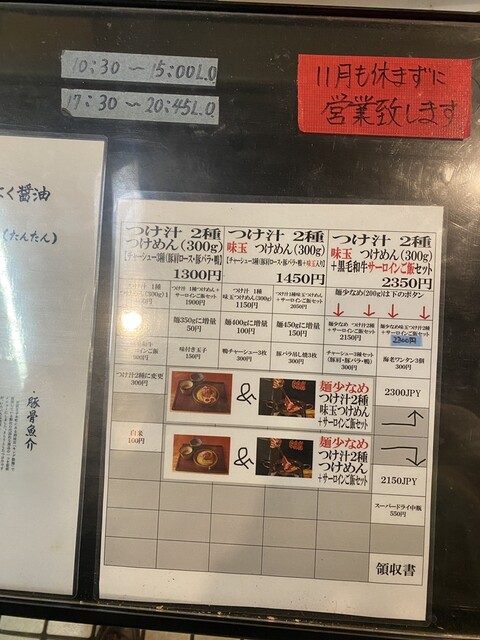 10:30 〜 15:00L.O
17:30 〜 20:45L.O
11月も休まずに
営業致します
く醤油
(たんたん)
・豚骨魚介
つけ汁 2種
つけめん(300g)
【チャーシュー3種(豚肩ロース・豚バラ・鴨)】
1300円
つけ汁 2種
味玉 つけめん(300g)
【チャーシュー3種(豚肩ロース・豚バラ・鴨+味玉入り)】
1450円
つけ汁 2種
味玉 つけめん(300g)
+黒毛和牛サーロインご飯セット
2350円
つけ汁 1種
つけ汁 1種つけめん+
サーロインご飯セット
1900円
つけ汁 1種
味玉つけめん(300g)
1150円
つけ汁 1種味玉つけめん+
サーロインご飯セット
2050円
麺少なめ(200g)は下のボタン
↓ ↓ ↓ ↓
麺350gに増量
50円
麺400gに増量
100円
麺450gに増量
150円
麺少なめ つけ汁2種+
サーロインご飯セット
2150円
麺少なめ味玉つけ汁2種+
サーロインご飯セット
2300円
300円
味付き玉子
150円
鴨チャーシュー3枚
300円
豚バラ吊し焼3枚
300円
チャーシュー3種セット
(豚肩・豚バラ・鴨)
300円
海老ワンタン3個
300円
つけ汁2種に変更
300円
&
麺少なめ
つけ汁2種
味玉つけめん
+サーロインご飯セット
2300JPY
白米
100円
&
麺少なめ
つけ汁2種
つけめん
+サーロインご飯セット
2150JPY
スーパードライ中瓶
550円
領収書